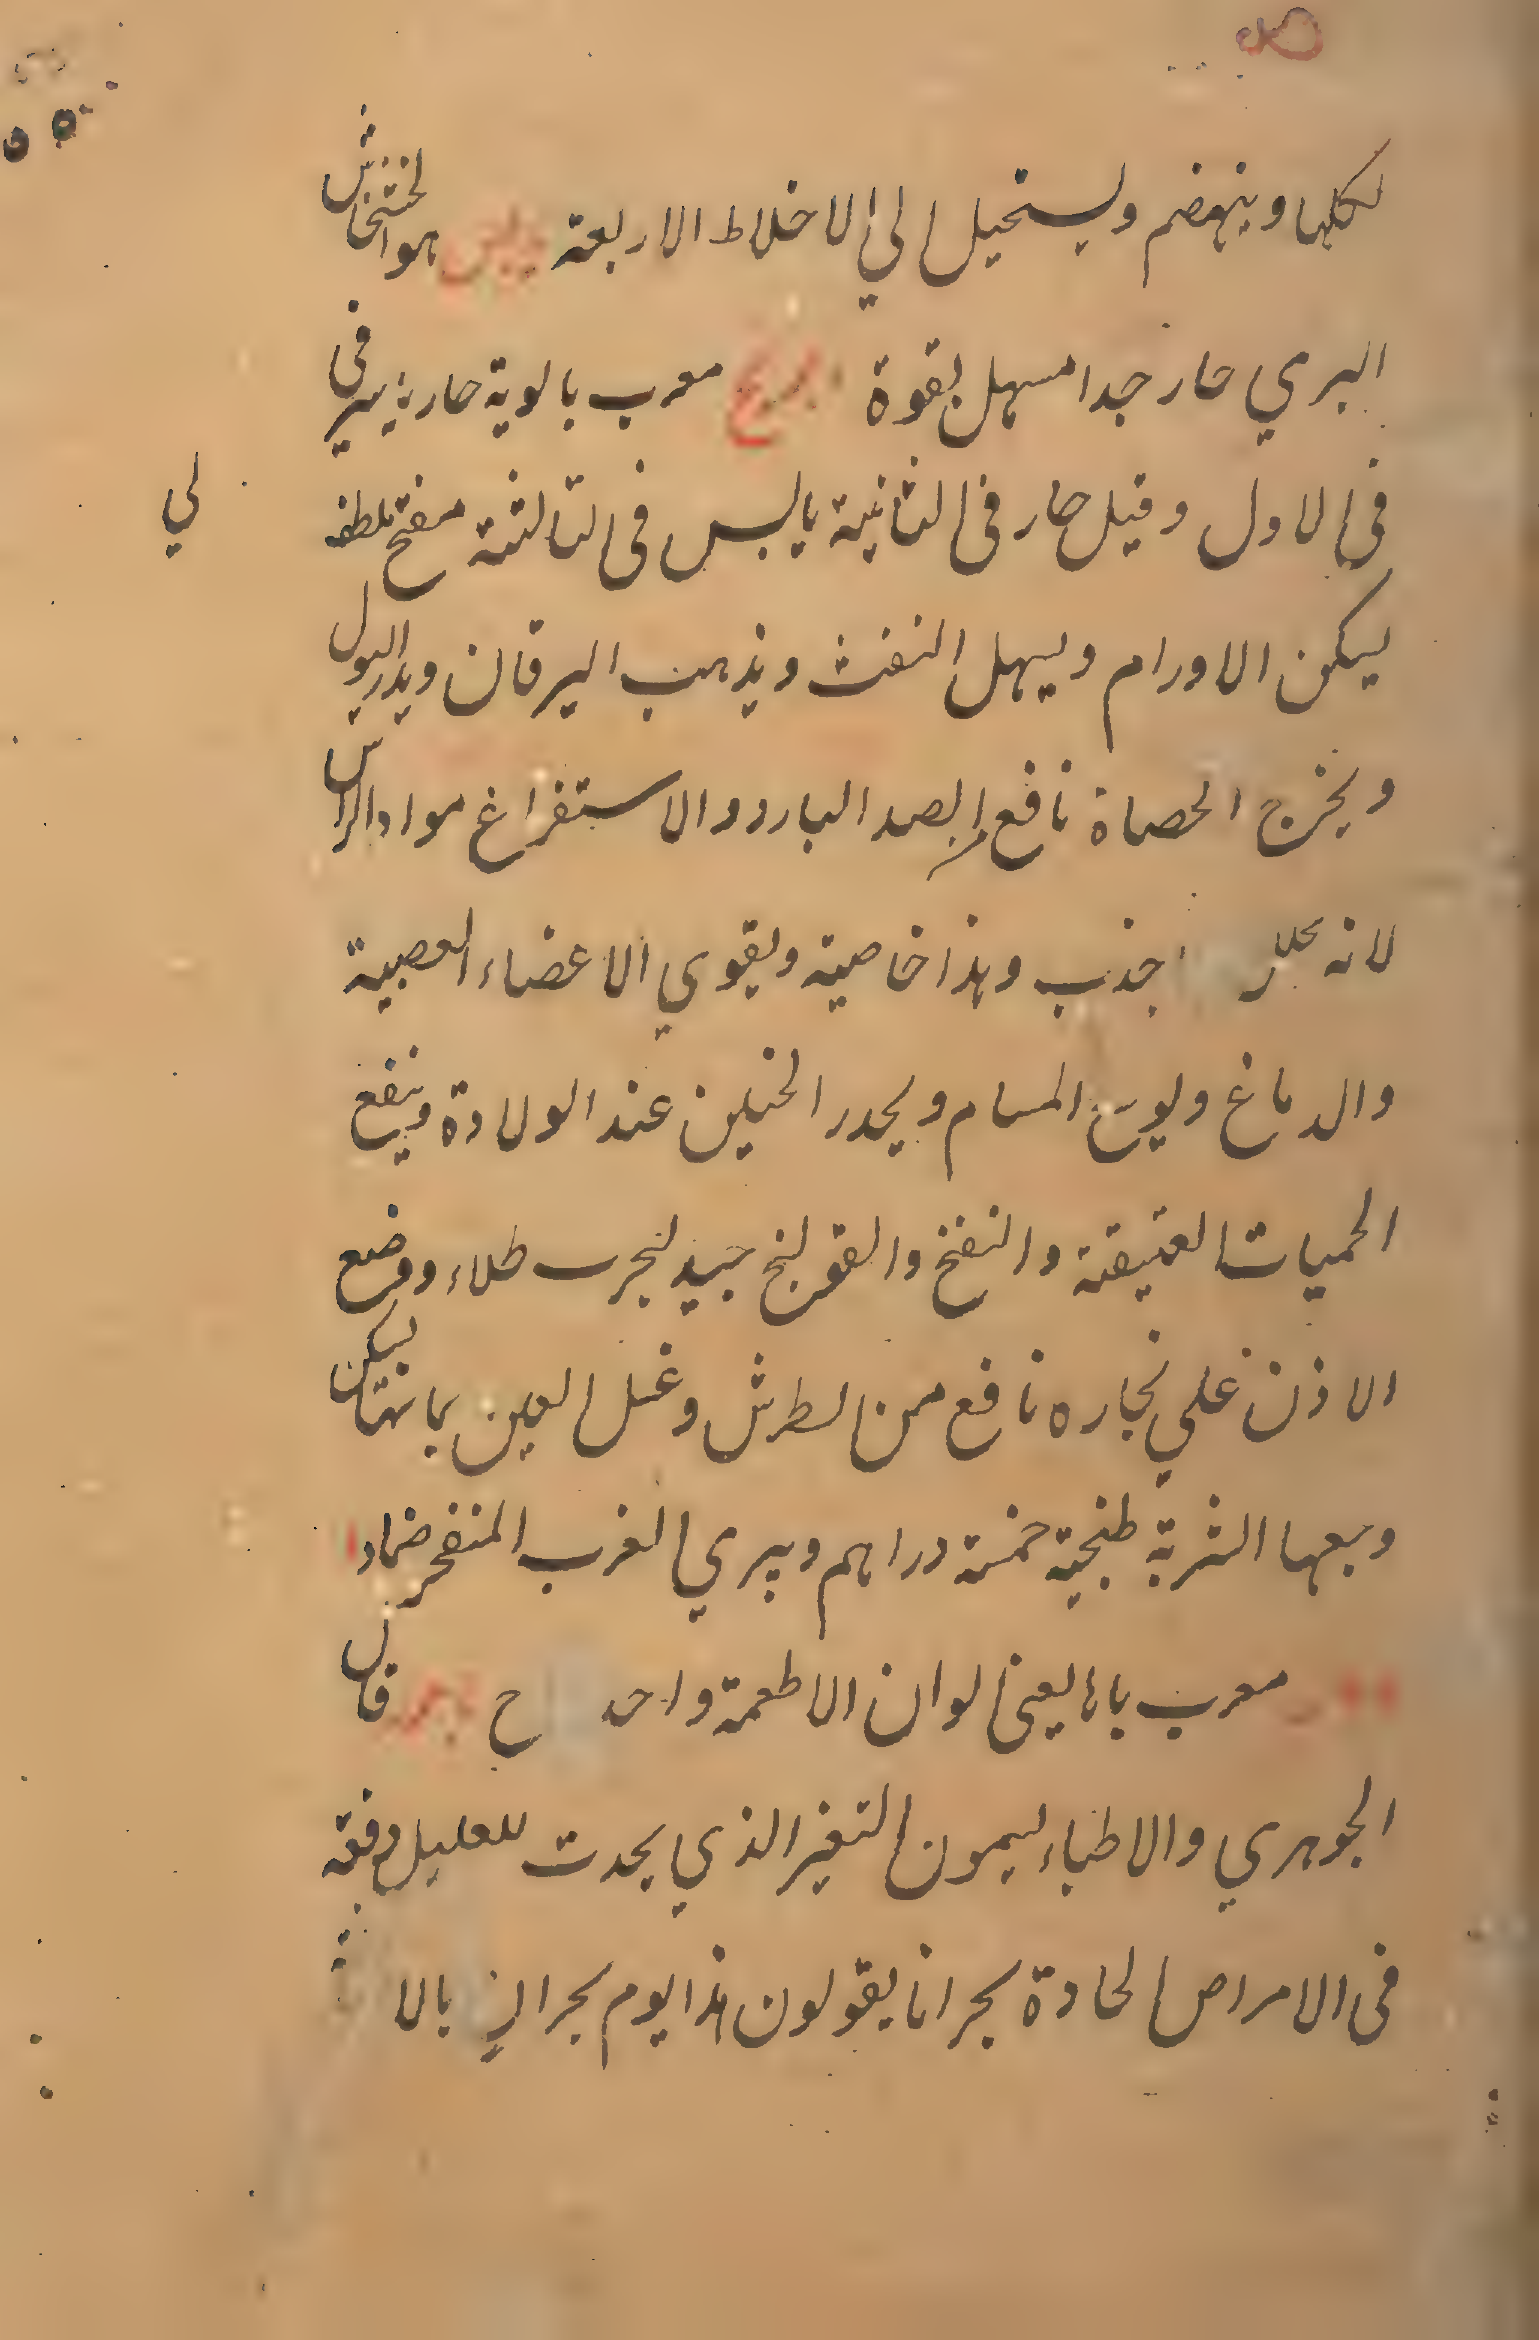 لكلها وينهضم ويستحيل الي الاخلاط الاربعة هو الخشخاش
البري حار جدا مسهل بقوة معرب بالوية حار يابس في
في الاول وقيل حار في الثانية يابس في الثالثة مفتح ملطف
يسكن الاورام ويسهل النفث ويذهب اليرقان ويدر البول
ويخرج الحصاة نافع البارد والاستفراغ مواد الراس
لانه جذب وهذا خاصية ويقوي الاعضاء العصبية
والدماغ ويوسع المسام ويحدر الجنين عند الولادة وينفع
الحميات العتيقة والنفخ والقولنج جيد لجرب طلاء ووضع
الاذن علي بخاره نافع من الطرش وغسل العين بمائها يسكن
الشربة خمسة دراهم ويبري الغرب المنفجر ضمادا
معرب باها يعني الوان الاطعمة واحد قال
الجوهري والاطباء يسمون التغير الذي يحدث للعليل دفعة
في الامراض الحادة بحرانا يقولون هذا يوم بحران بالا
لي